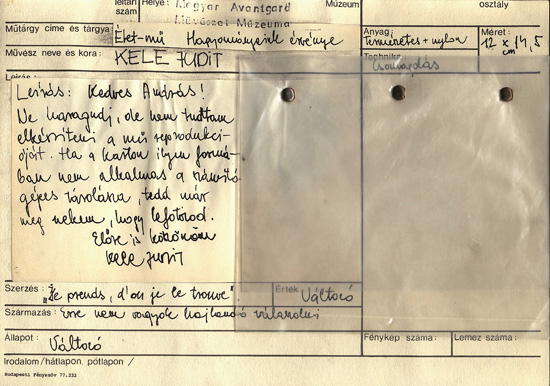 leltári szám
Helye: Magyar Avantgard Művészet Múzeuma Múzeum osztály
Műtárgy címe és tárgya: Élet-mű Hagyományaink érvénye
Anyag: Természetes + nylon
Méret: 12 x 14,5 cm
Művész neve és kora: KELE JUDIT
Technika: Csomózás
Leírás:
Leírás: Kedves András!
Ne haragudj, de nem tudtam
elkészíteni a mű reprodukci-
óját. Ha a karton ilyen formá-
ban nem alkalmas a számító-
gépes tárolásra, tedd már
meg nekem, hogy lefotózod.
Előre is köszönöm
Kele Judit
Szerzés: "Je prends, d'où je le trouve".
Érték: Változó
Származás: Erre nem vagyok hajlandó válaszolni
Állapot: Változó
Fénykép száma:
Lemez száma:
Irodalom /hátlapon, pótlapon /
Budapesti Fényszöv 77.332